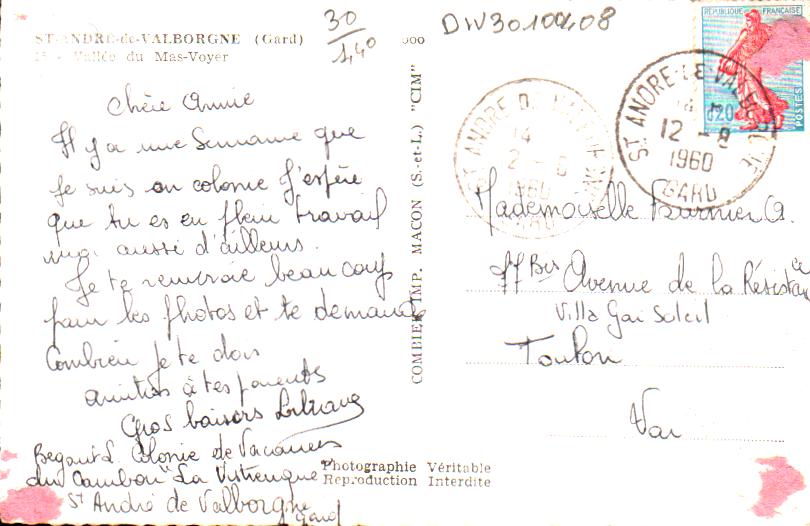 ST-ANDRÉ-de-VALBORGNE (Gard)
Vallée du Mas-Voyer
30
1,40
000
DW30100408
Chère Annie
Il y a une semaine que
je suis en colonie J'espère
que tu es en plein travail
moi aussi d'ailleurs.
Je te remercie beaucoup
pour les photos et te demande
Combien je te dois
amitiés à tes parents
Gros baisers
Colonie de Vacances
du Cambou "La
St André de Valborgne
Gard
COMBIER IMP. MACON (S.-et-L.) "CIM"
Photographie Véritable
Reproduction Interdite
RÉPUBLIQUE FRANÇAISE
0,20
POSTES
ST ANDRE DE
14
12 - 8
1960
GARD
ST ANDRE-DE-VALBORGNE
14
12 - 8
1960
GARD
Mademoiselle Burnier A.
77 Bis Avenue de la Résistance
Villa Gai Soleil
Toulon
Var